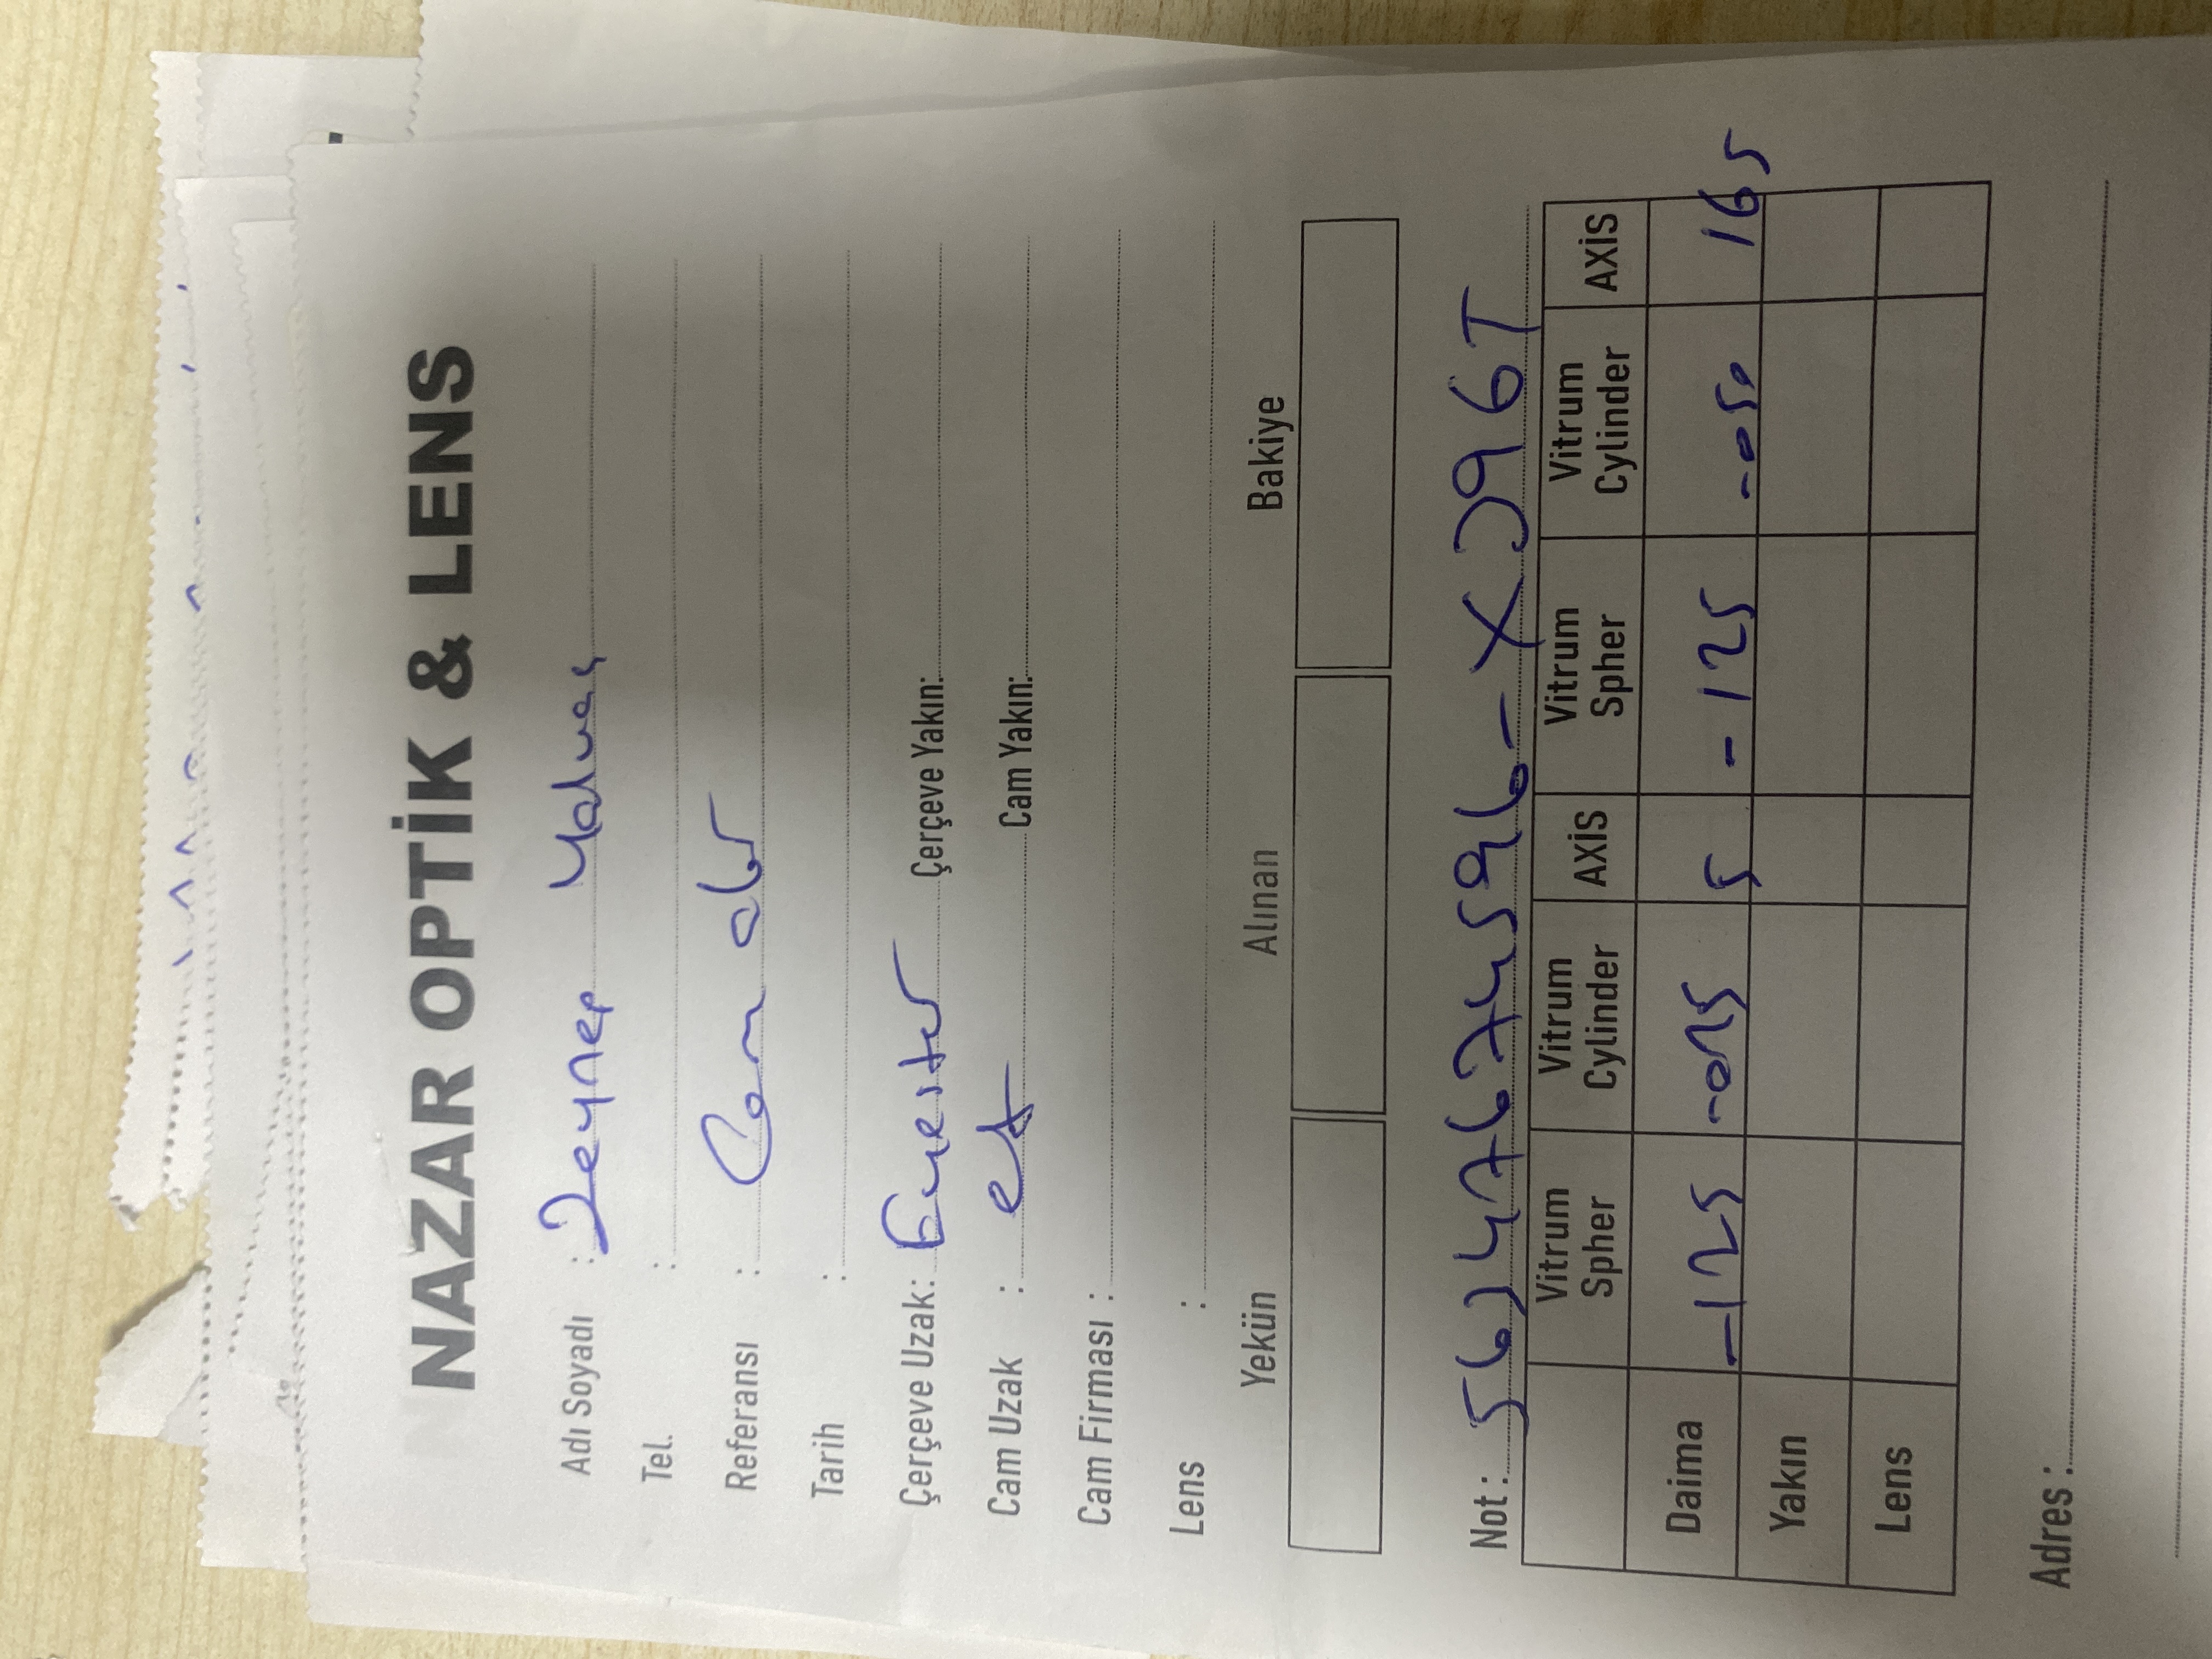 NAZAR OPTİK & LENS
Adı Soyadı : Zeynep Yalvaç
Tel. :
Referansı : Cam
Tarih :
Çerçeve Uzak: Çerçeve Yakın:
Cam Uzak : Cam Yakın:
Cam Firması :
Lens :
Yekün Alınan Bakiye
Not :
Vitrum Spher Vitrum Cylinder AXİS Vitrum Spher Vitrum Cylinder AXİS
Daima -125 5 -125 -050 165
Yakın
Lens
Adres :